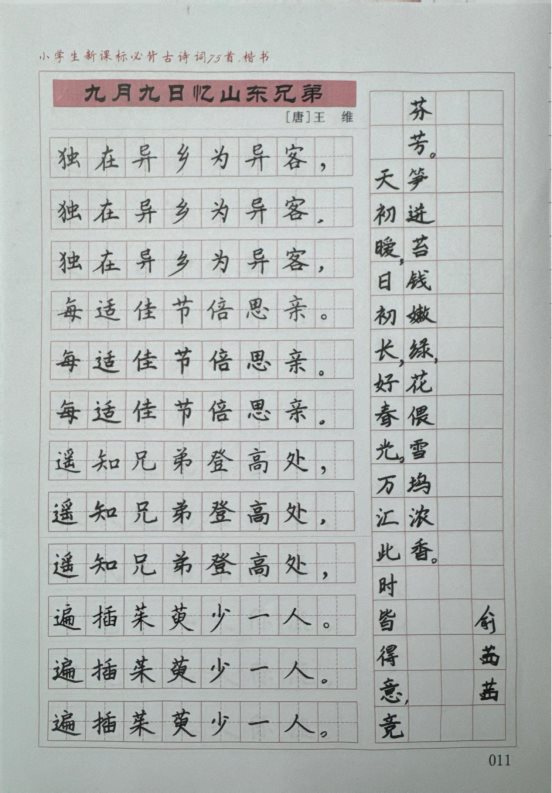 小学生新课标必背古诗词75首.楷书
九月九日忆山东兄弟
[唐]王 维
独在异乡为异客,
独在异乡为异客.
独在异乡为异客,
每适佳节倍思亲。
每适佳节倍思亲。
每适佳节倍思亲。
遥知兄弟登高处,
遥知兄弟登高处,
遥知兄弟登高处,
遍插茱萸少一人。
遍插茱萸少一人。
遍插茱萸少一人。
天初暖,日初长,好春光。万汇此时皆得意,竞
芬芳。笋进苔钱嫩绿,花偎雪坞浓香。
俞茜茜
011